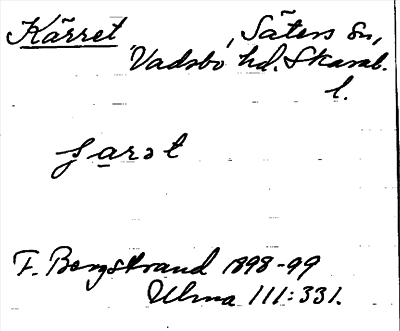 Kärret, Säters sn,
Vadsbo hd. Skarab.
l.
F. Bergstrand 1898-99
Ulma 111:331.